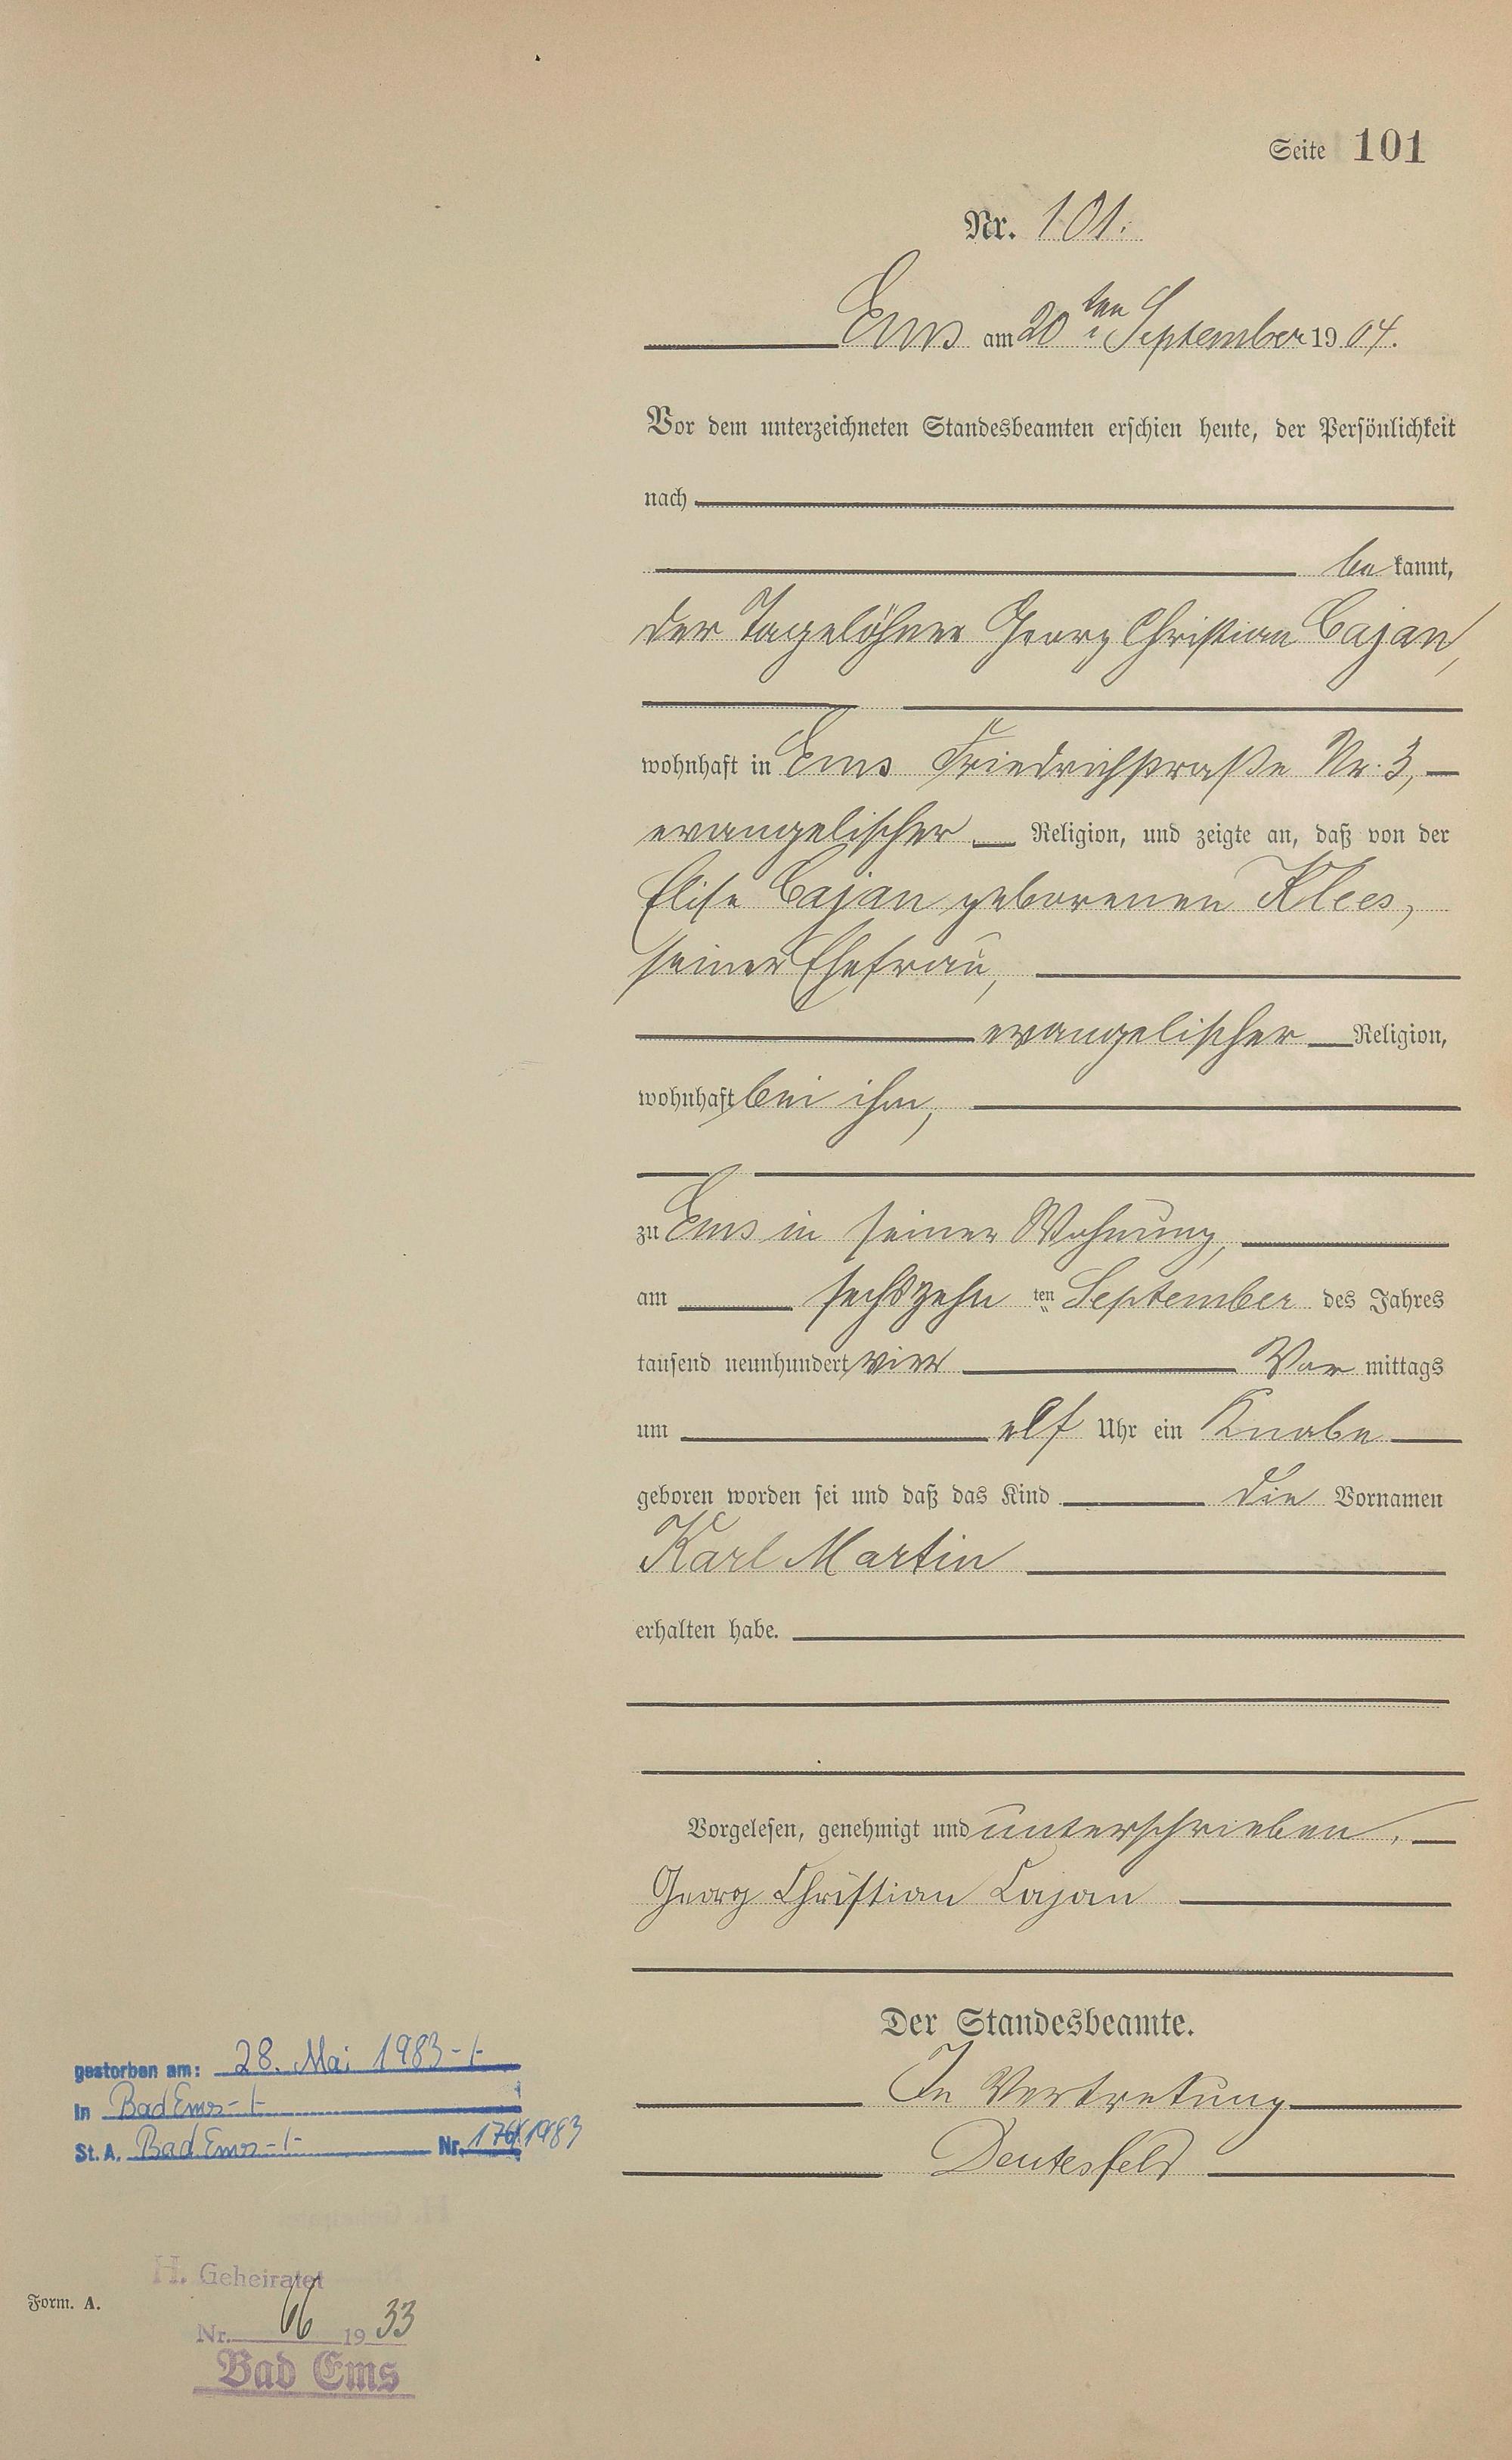 Seite 101
Nr. 101.
Ems am 20ten September 1904.
Vor dem unterzeichneten Standesbeamten erschien heute, der Persönlichkeit
nach
be kannt,
der Tagelöhner Georg Christian Cajan,
wohnhaft in Ems Friedrichstraße Nr. 3,
evangelischer Religion, und zeigte an, daß von der
Elise Cajan geborenen Klees,
seiner Ehefrau,
evangelischer Religion,
wohnhaft bei ihm,
zu Ems in seiner Wohnung,
am sechszehn ten September des Jahres
tausend neunhundert vier Vor mittags
um elf Uhr ein Knabe
geboren worden sei und daß das Kind die Vornamen
Karl Martin
erhalten habe.
Vorgelesen, genehmigt und unterschrieben.
Georg Christian Cajan
Der Standesbeamte.
In Vertretung
gestorben am: 28. Mai 1983
in Bad Ems
St. A. Bad Ems Nr. 1983
H. Geheiratet
Form. A.
Nr. 66 1933
Bad Ems